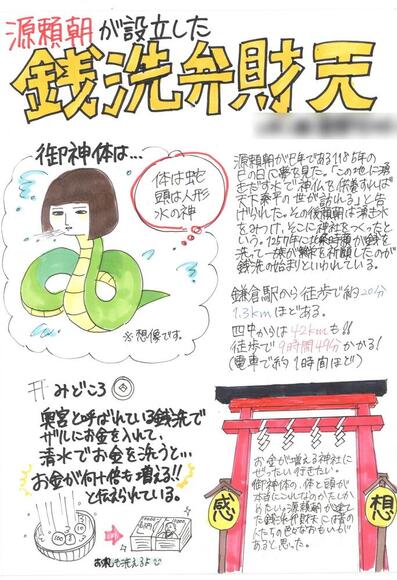 源頼朝が設立した
銭洗弁財天
御神体は…
体は蛇
頭は人形
水の神
※想像です。
源頼朝が巳年である1185年の
巳の日に夢を見た。「この地に湧
きだす水で神仏を供養すれば
天下泰平の世が訪れる」と告
げられた。その後頼朝は湧き水
をみつけ、そこに神社をつくったと
いう。1257年に北条時頼が銭を
洗って一族が繁栄を祈願したのが
銭洗の始まりといわれている。
鎌倉駅から徒歩で約20分
1.3kmほどある。
四中からは42kmも!!
徒歩で9時間49分かかる!
(電車で約1時間ほど)
みどころ
奥宮と呼ばれている銭洗で
ザルにお金を入れて、
清水でお金を洗うと…
お金が何十倍も増える!!
と伝えられている。
お札も洗えるよ
感
想
お金が増える神社に
ぜったい行きたい。
御神体の、体と頭が
本当にこれなのかたしか
めたい。源頼朝が建て
た銭洗弁財天には昔の人
たちの色々なおもいが
あると思った。